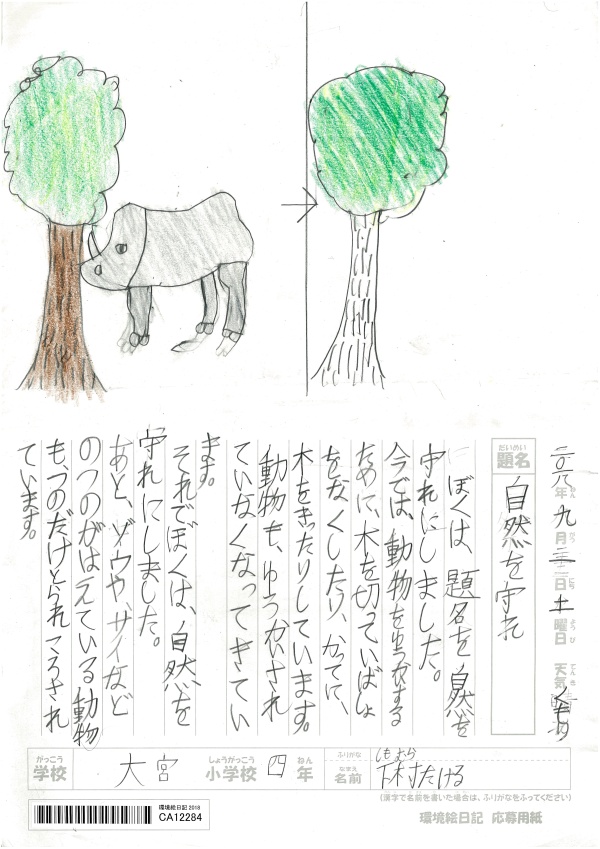 二〇一八年九月二十二日土曜日 天気 くもり
ねん がつ にち ようび てんき
だいめい
題名 自然を守れ
ぼくは、題名を自然を
守れにしました。
今では、動物をゆうかいする
ために、木を切っていばしょ
をなくしたり、かってに、
木をきったりしています。
動物も、ゆうかいされ
ていなくなってきてい
ます。
それでぼくは、自然を
守れにしました。
あと、ゾウや、サイなど
のつのがはえている動物
も、つのだけとられころされ
ています。
がっこう しょうがっこう ねん ふりがな しもむら
学校 大宮 小学校 四年 なまえ 名前 下村たける
(漢字で名前を書いた場合は、ふりがなをふってください)
環境絵日記 2018
CA12284
環境絵日記 応募用紙